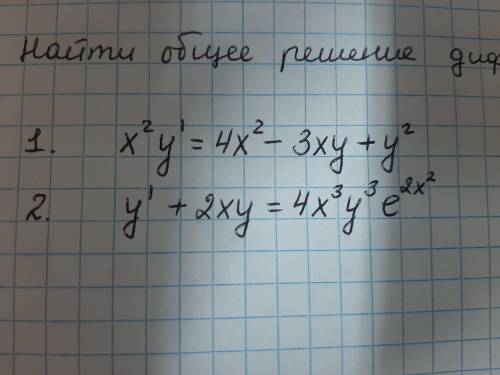 Найти общее решение диф
1. x²y' = 4x² - 3xy + y²
2. y' + 2xy = 4x³y³e^{2x²}